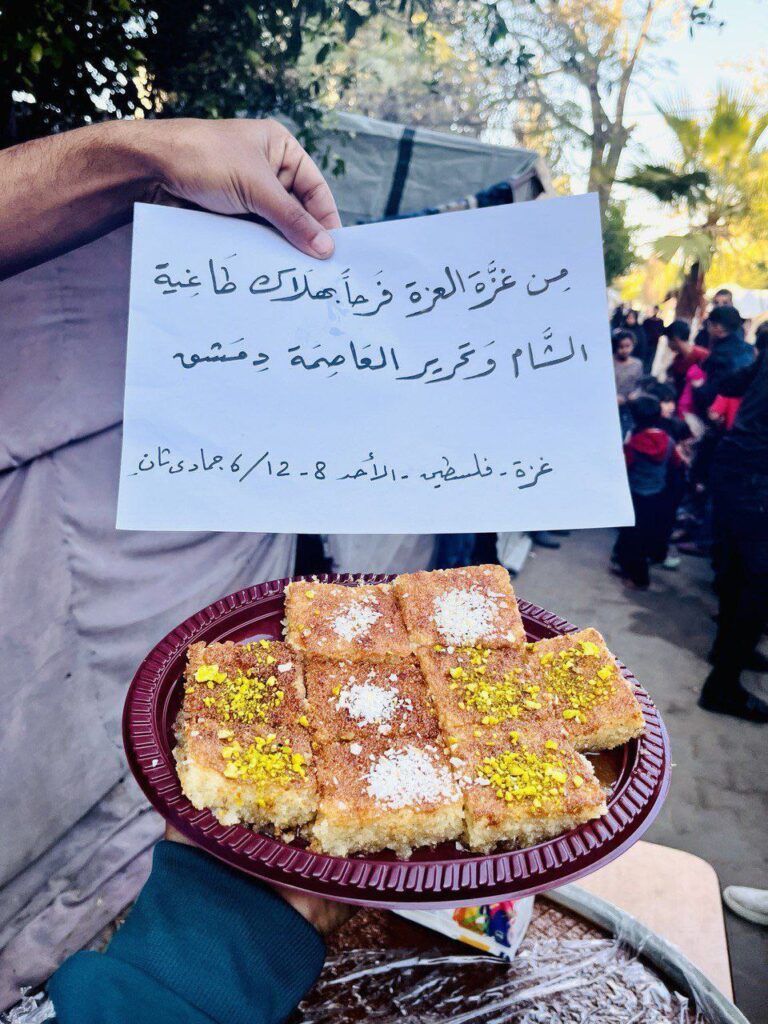 مِن غزَّة العزة فَرحاً بهَلاك طَاغِية
الشَّام وَتحرير العَاصِمَة دِمَشق
غزة - فلسطين - الأحد 8 - 12 / 6 جمادى ثان